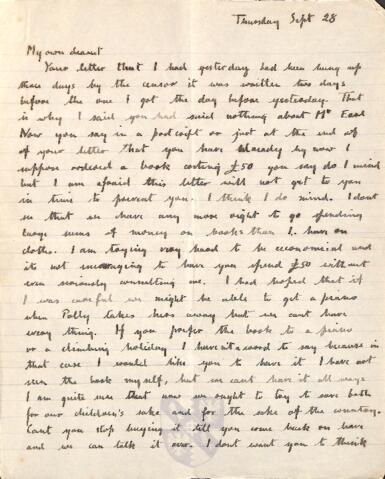 Thursday Sept 28
My own dearest
Your letter that I had yesterday had been hung up
three days by the censor it was written two days
before the one I got the day before yesterday. That
is why I said you had said nothing about Mr East
Now you say in a postscript or just at the end of
of your letter that you have already by now I
suppose ordered a book costing £50 you say do I mind
but I am afraid this letter will not get to you
in time to prevent you. I think I do mind. I dont
see that we have any more right to go spending
large sums of money on books than I have on
clothes. I am trying very hard to be economical and
its not encouraging to have you spend £50 without
even seriously consulting me. I had hoped that if
I was careful we might be able to get a piano
when Polly takes hers away but we cant have
every thing. If you prefer the book to a piano
or a climbing holiday I havent a word to say because in
that case I would like you to have it I have not
seen the book myself, but we cant have it all ways
I am quite sure that now we ought to try to save both
for our children's sake and for the sake of the country.
Cant you stop buying it till you come back on leave
and we can talk it over. I dont want you to think